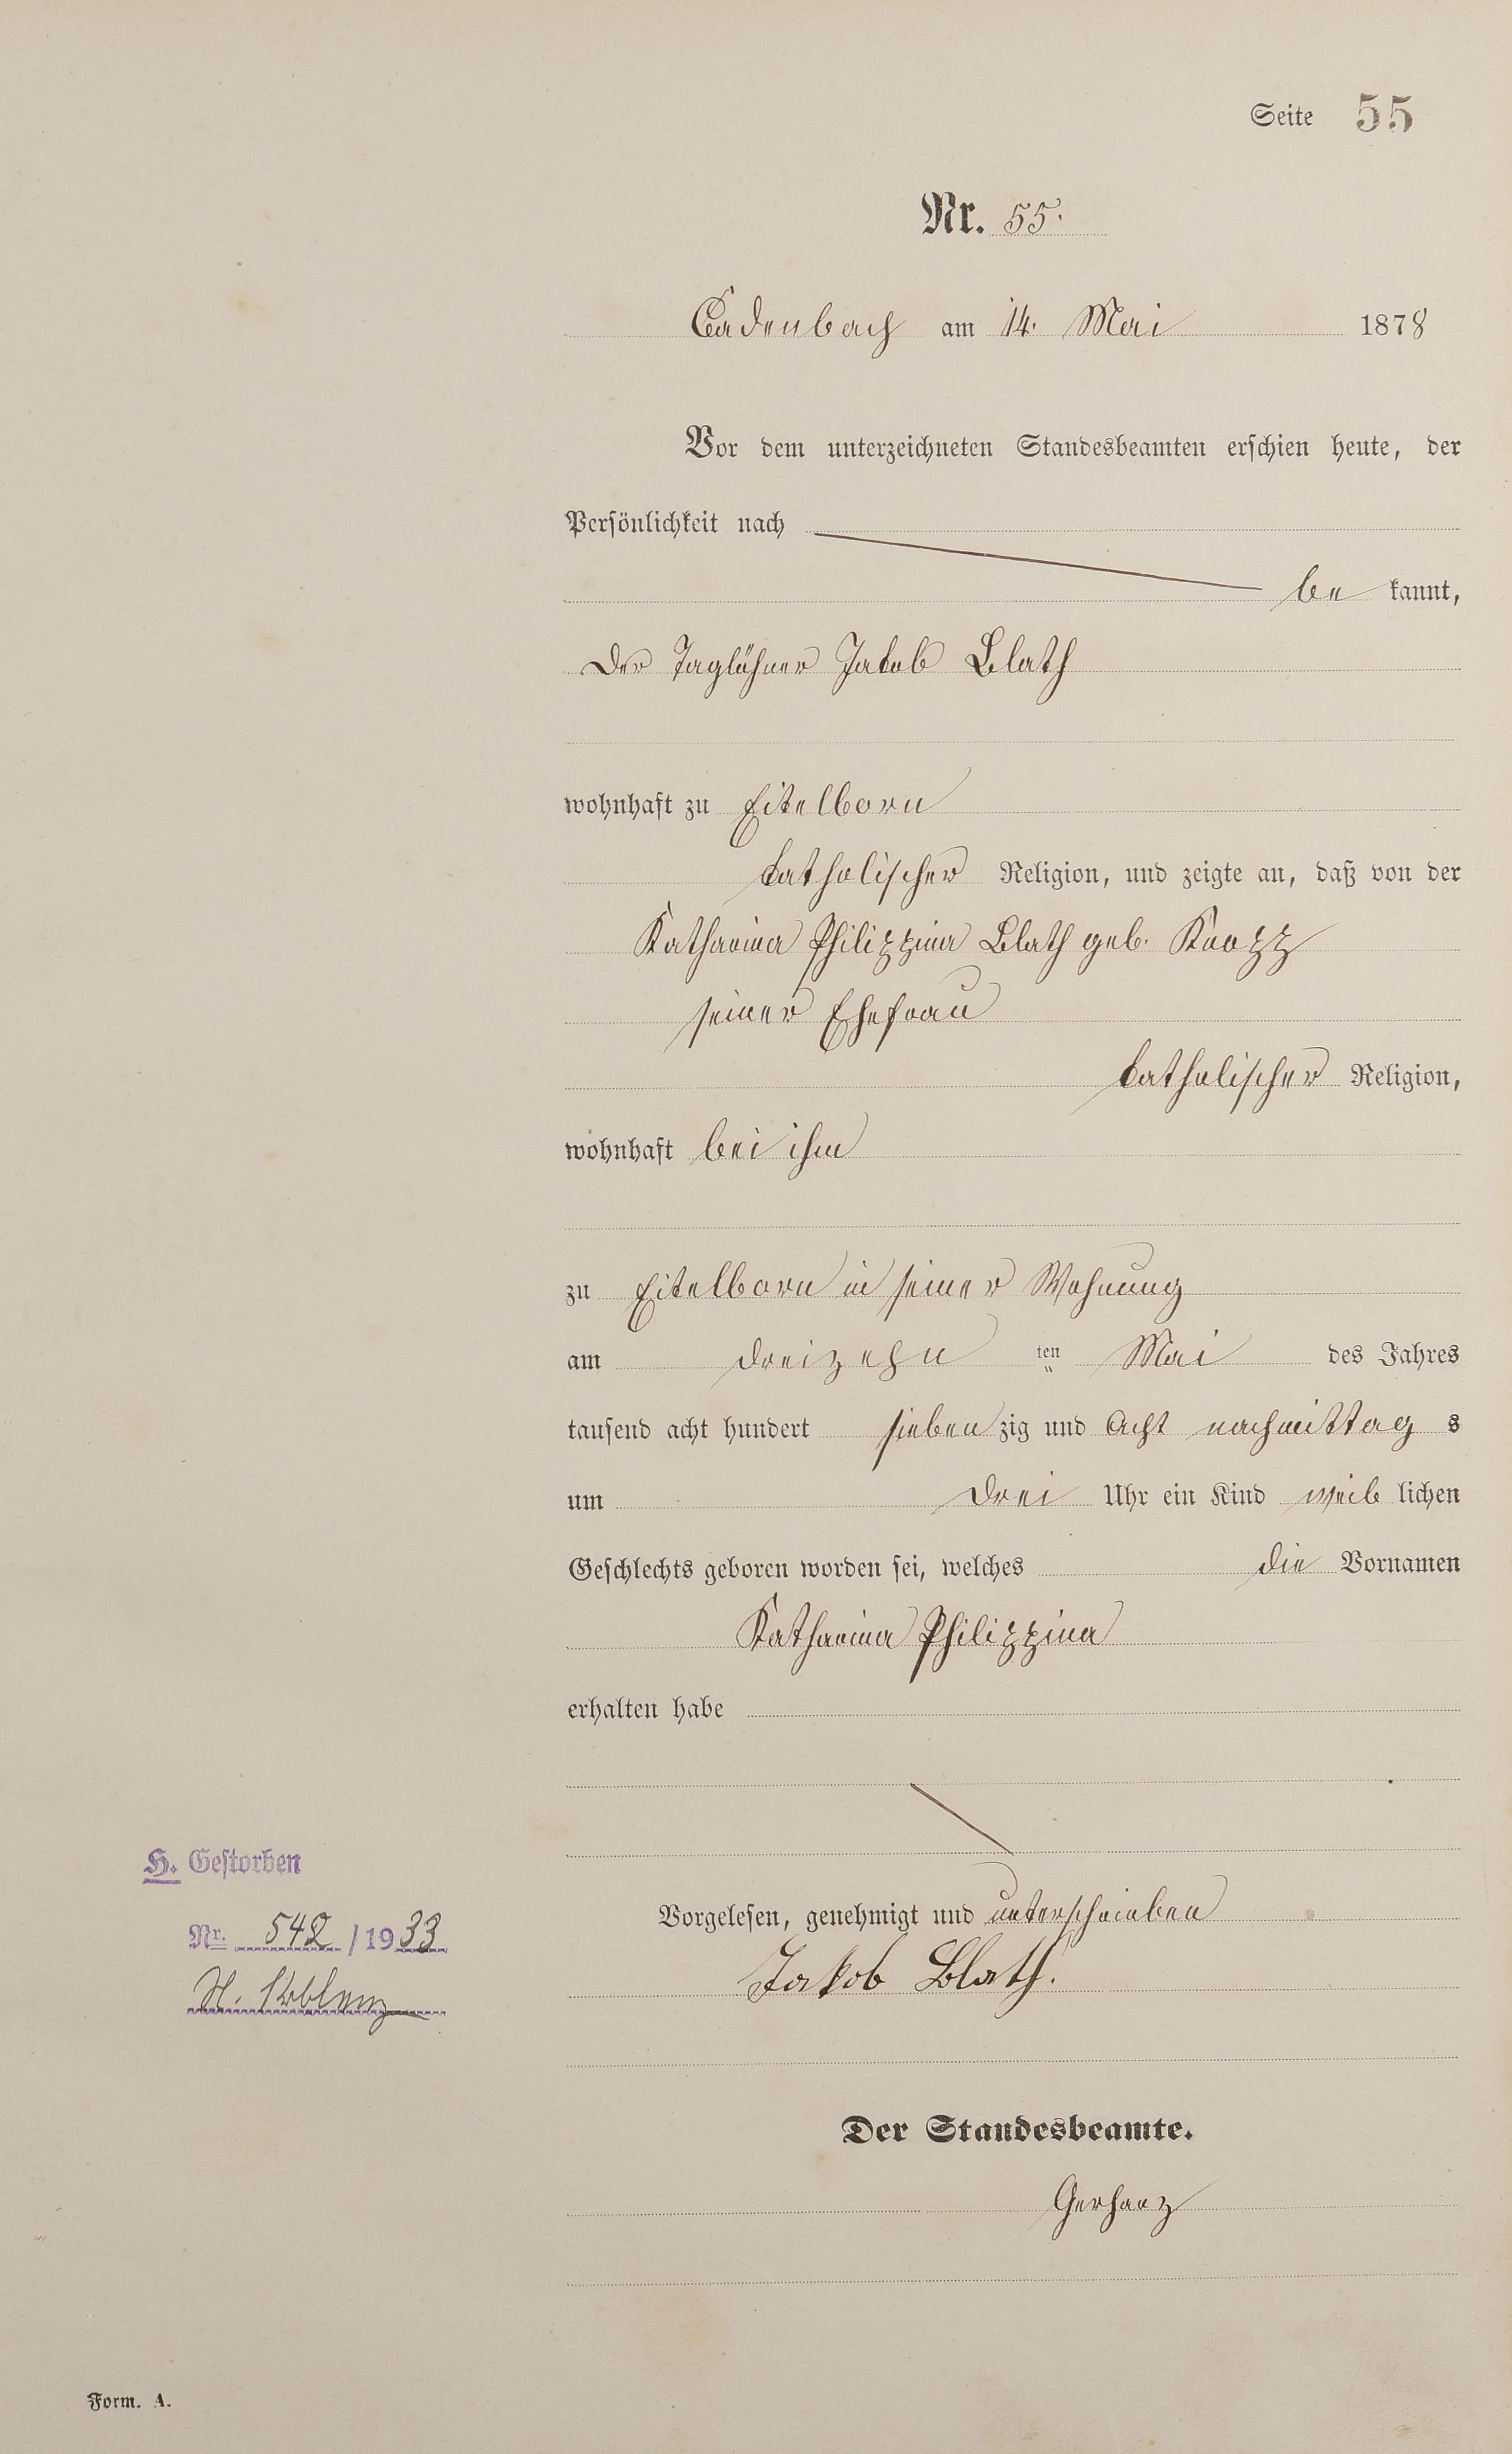 Seite 55
Nr. 55.
Cadenbach am 14. Mai 1878
Vor dem unterzeichneten Standesbeamten erschien heute, der
Persönlichkeit nach
be kannt,
der Taglöhner Jakob Blath
wohnhaft zu Eitelborn
katholischer Religion, und zeigte an, daß von der
Katharina Philippina Blath geb. Knopp
seiner Ehefrau
katholischer Religion,
wohnhaft bei ihm
zu Eitelborn in seiner Wohnung
am dreizehn ten Mai des Jahres
tausend acht hundert sieben zig und acht nachmittag s
um drei Uhr ein Kind weib lichen
Geschlechts geboren worden sei, welches die Vornamen
Katharina Philippina
erhalten habe
H. Gestorben
Nr. 542 / 1933
St. Koblenz
Vorgelesen, genehmigt und unterschrieben
Jakob Blath.
Der Standesbeamte.
Gerharz
Form. A.